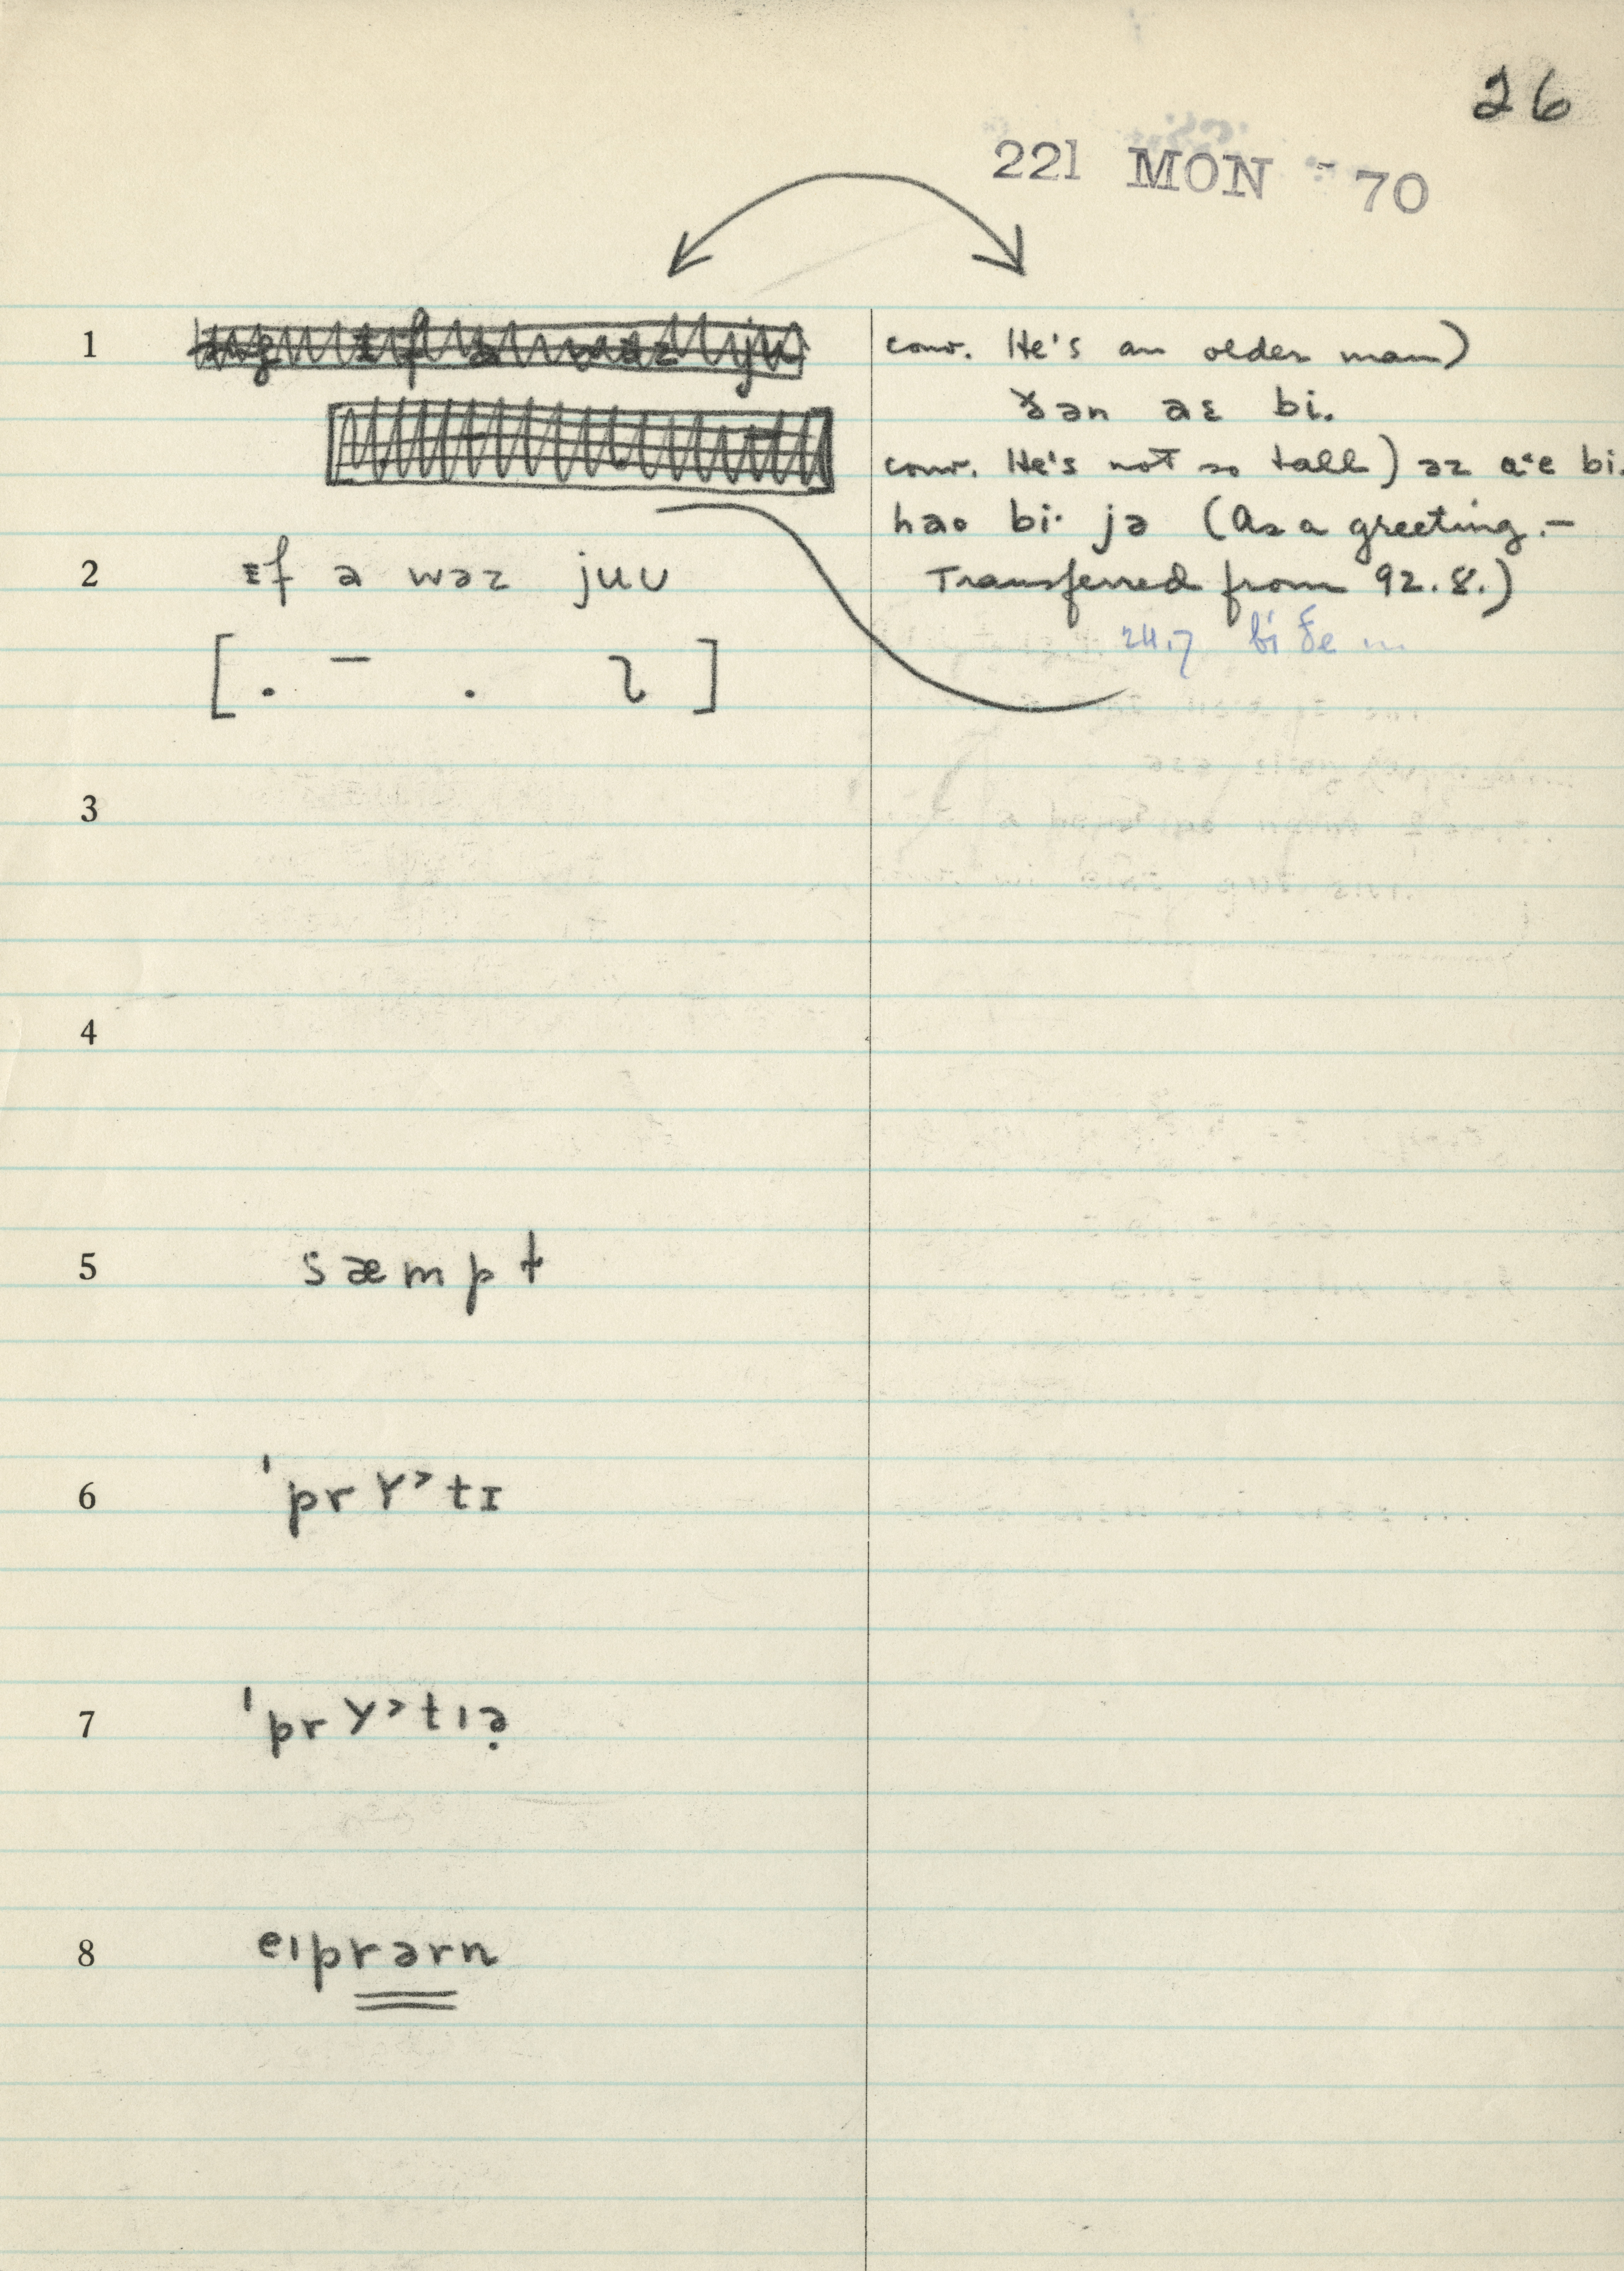 26
221 MON - 70
1
conv. He's an older man)
ɤən aɛ bi.
conv. He's not so tall) əz bi.
hao bi· jə (As a greeting.—
2 ɪf a wəz juu
Transferred from 92.8.)
24.7 bi
[ . – . ]
3
4
5 sæmpt
6 ˈprʏ˃tɪ
7 ˈprʏ˃tıə̣
8 eıprərn